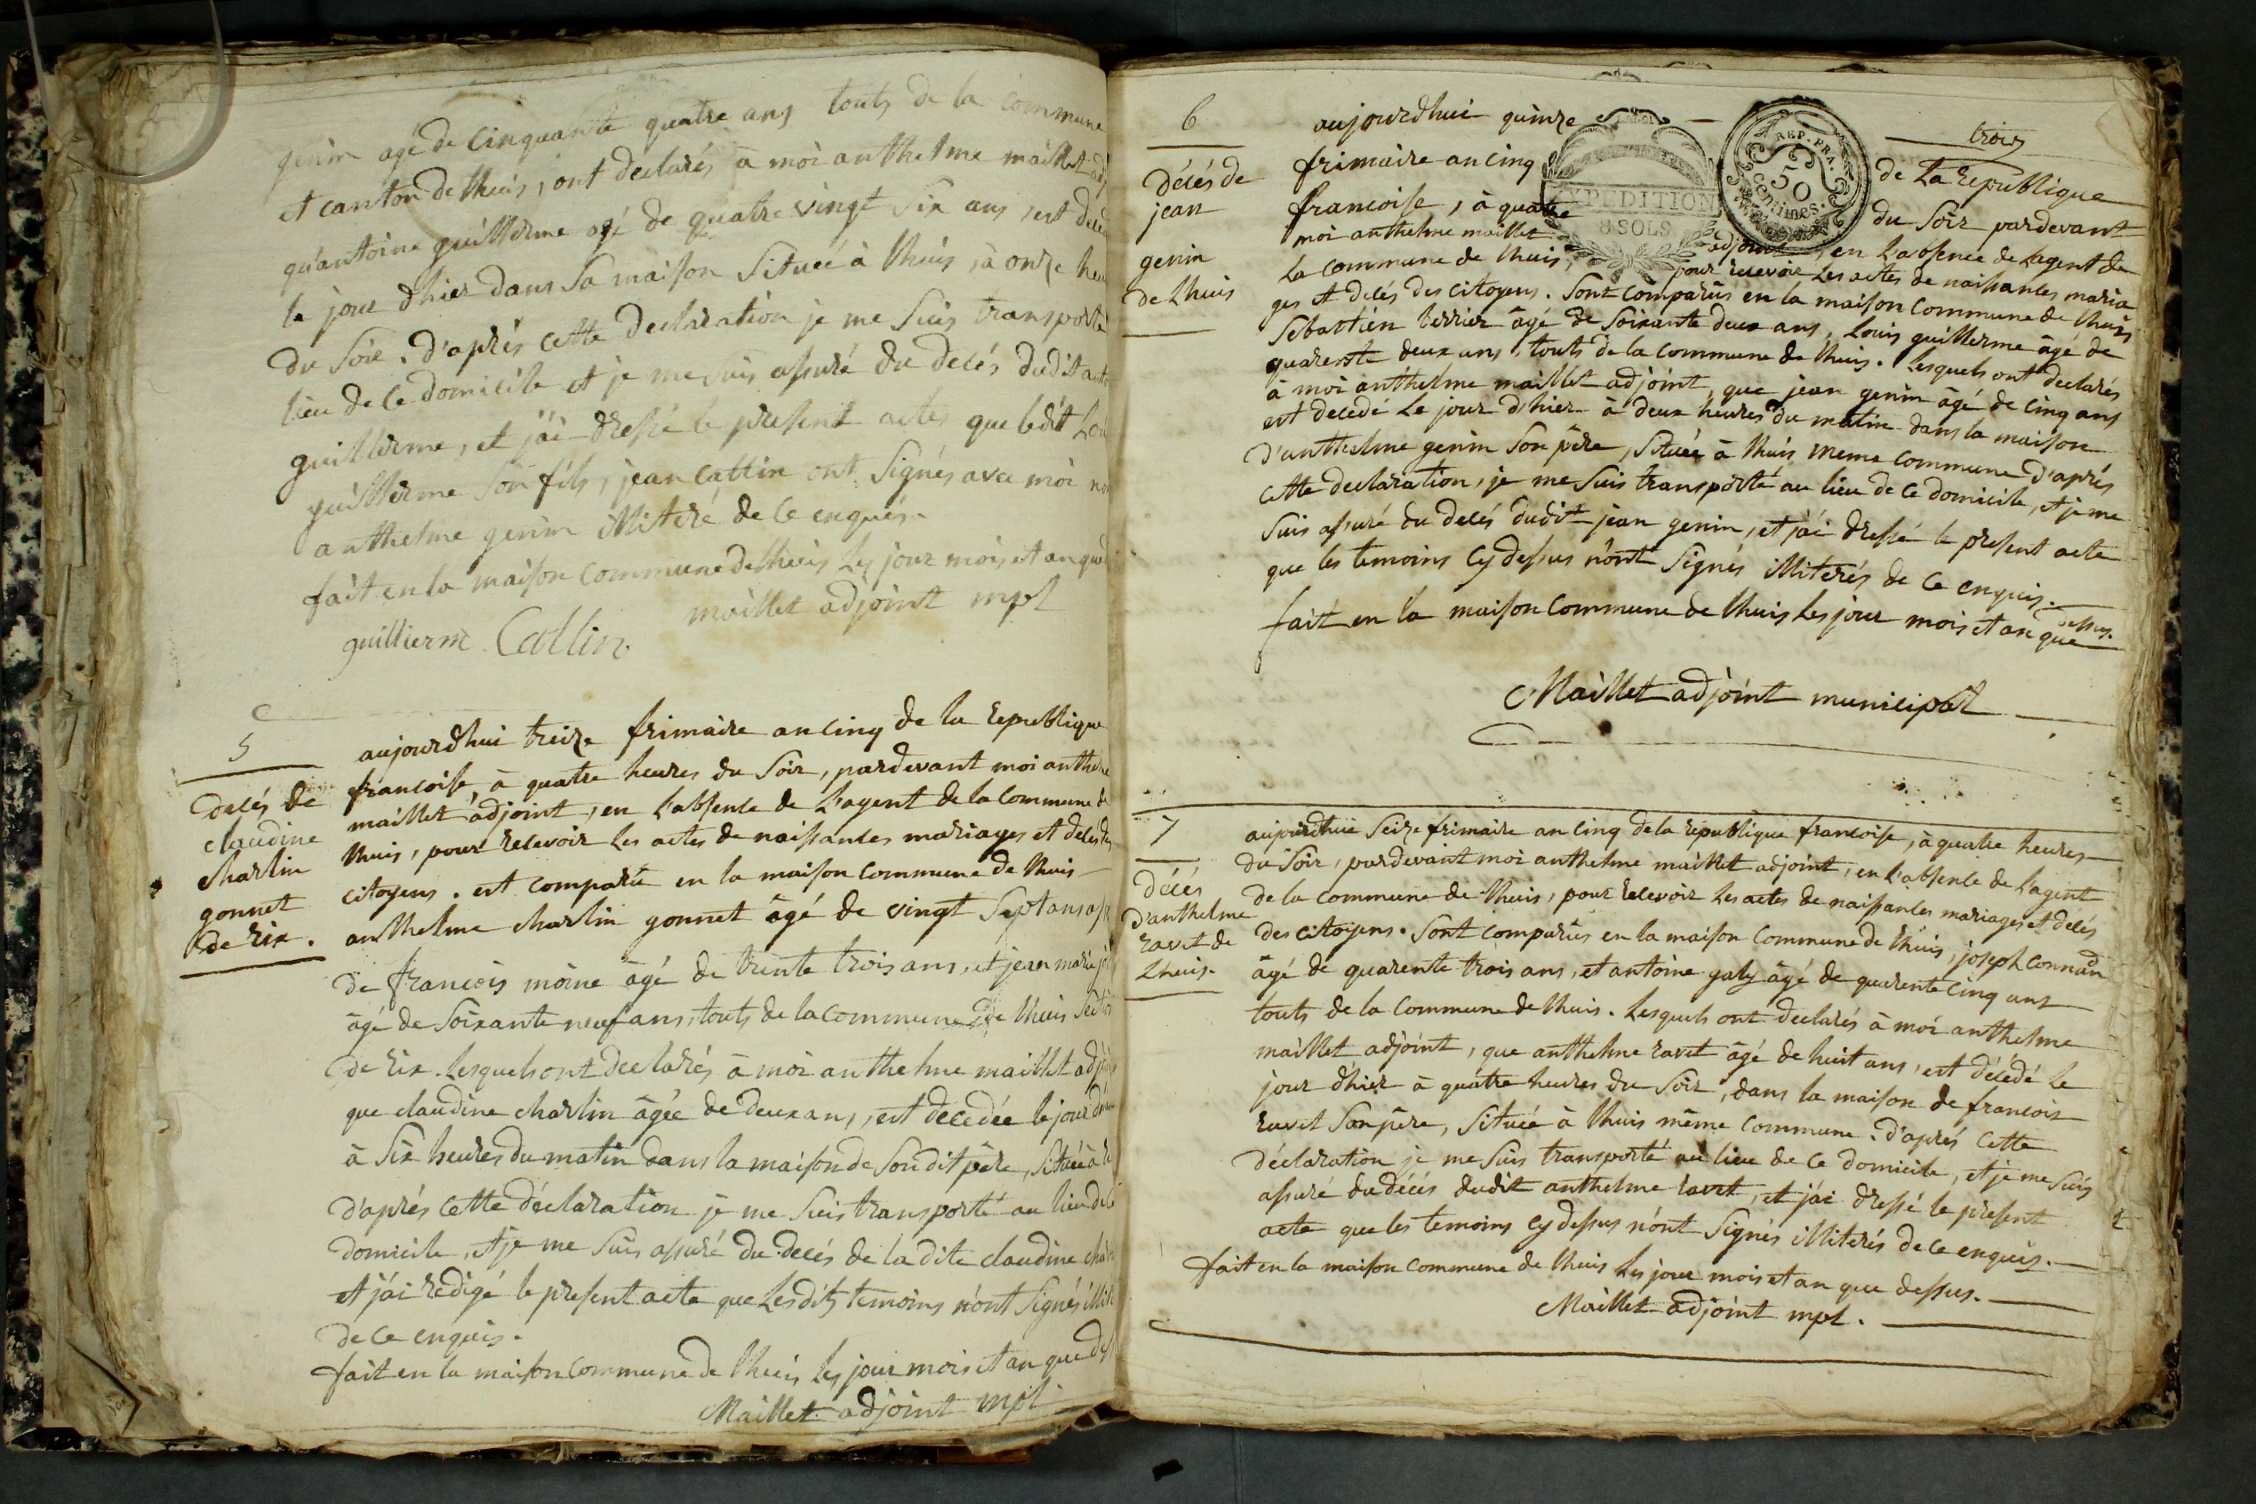 genin agé de cinquante quatre ans touts de la commune
et canton de lhuis, ont declarés à moi anthelme maillet adj
qu'antoine guillerme agé de quatre vingt six ans, est déced
le jour d'hier dans sa maison située à lhuis, à onze heu
du soir. d'aprés cette declaration je me suis transporté
lieu de ce domicile et je me suis assuré du decés dudit anto
guillerme, et j'ai dressé le present acte, que ledit Lou
guillerme son fils, jean Cattin ont signés avec moi non
anthelme genin illiteré de ce enquis.
fait en la maison commune de lhuis les jour mois et an que d
guillierm Cattin. maillet adjoint mpl
5
decés de
claudine
charlin
gonnet
de rix.
aujourdhui treize frimaire an cinq de la republique
francoise, à quatre heures du soir, pardevant moi anthelme
maillet adjoint, en l'absence de l'agent de la commune de
lhuis, pour recevoir les actes de naissances mariages et decés des
citoyens. est comparu en la maison commune de lhuis
anthelme charlin gonnet âgé de vingt sept ans ass
de francois moine âgé de trente trois ans, et jean marie jol
âgé de soixante neuf ans, touts de la commune de lhuis section
de rix. lesquels ont declarés à moi anthelme maillet adjoint
que claudine charlin âgée de deux ans, est decedée le jour d'hier
à six heures du matin dans la maison de son dit père, située à rix
d'aprés cette déclaration je me suis transporté au lieu de ce
domicile, et je me suis assuré du decés de la dite claudine char
et j'ai redigé le present acte que les dits temoins n'ont signés illite
de ce enquis.
fait en la maison commune de lhuis les jour mois et an que des
Maillet adjoint mpl
trois
6
décés de
jean
genin
de Lhuis
EXPEDITION
8 SOLS
REP. FRA.
50
centimes.
aujourdhui quinze
frimaire an cinq de La republique
francoise, à quatre du soir pardevant
moi anthelme maillet adjoint, en l'absence de l'agent de
la commune de lhuis, pour recevoir les actes de naissances maria
ges et decés des citoyens. sont comparus en la maison commune de lhuis
sébastien terrier âgé de soixante deux ans, Louis guillerme âgé de
quarente deux ans, touts de la commune de lhuis. lesquels ont declarés
à moi anthelme maillet adjoint, que jean genin âgé de cinq ans
est decedé le jour d'hier à deux heures du matin dans la maison
d'anthelme genin son père, située à lhuis meme commune d'aprés
cette declaration, je me suis transporté au lieu de ce domicile, et je me
suis assuré du decés dudit jean genin, et j'ai dressé le present acte
que les temoins cy dessus n'ont signés illiterés de ce enquis.
fait en la maison commune de lhuis les jour mois et an que dessus.
Maillet adjoint municipal
7
décés
d'anthelme
ravet de
Lhuis.
aujourdhui seize frimaire an cinq de la republique francoise, à quatre heures
du soir, pardevant moi anthelme maillet adjoint, en l'absence de l'agent
de la commune de lhuis, pour recevoir les actes de naissances mariages et decés
des citoyens. sont comparus en la maison commune de lhuis, joseph connand
âgé de quarente trois ans, et antoine galy âgé de quarente cinq ans
touts de la commune de lhuis. lesquels ont declarés à moi anthelme
maillet adjoint, que anthelme ravet âgé de huit ans, est décédé le
jour d'hier à quatre heures du soir, dans la maison de francois
ravet son père, située à lhuis même commune. d'aprés cette
déclaration je me suis transporté au lieu de ce domicile, et je me suis
assuré du décés dudit anthelme ravet, et j'ai dressé le present
acte que les temoins cy dessus n'ont signés illiterés de ce enquis.
fait en la maison commune de lhuis les jour mois et an que dessus.
Maillet adjoint mpl.